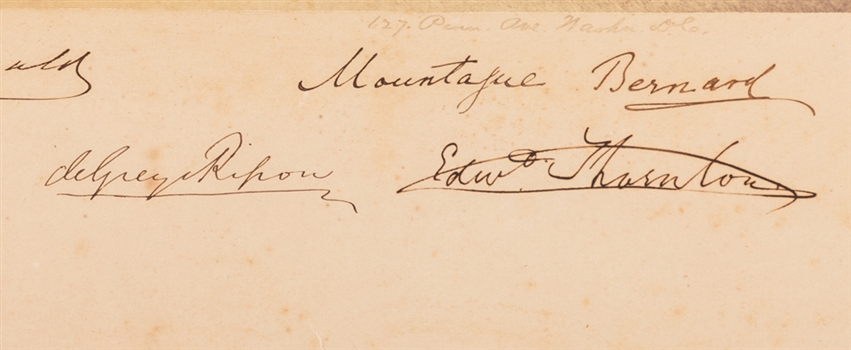 127. Penn. Ave. Washn D.C.
ald Mountague Bernard
deGrey & Ripon Edwd. Thornton